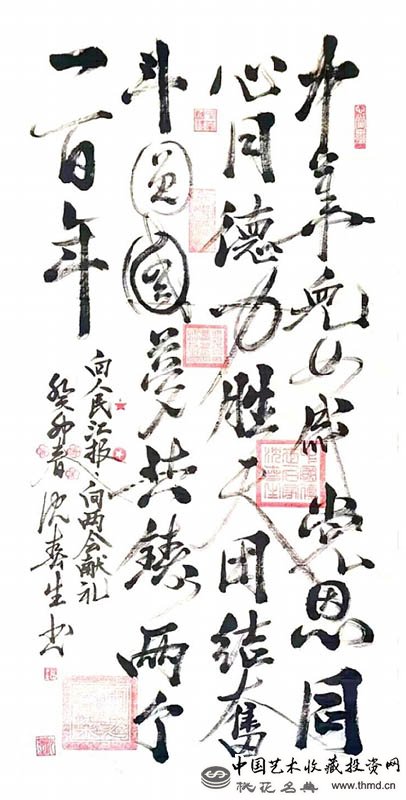 中華兒女感党恩同
心同德力胜天团结奮
斗圆國夢共铸两个
一百年
向人民汇报、向两会献礼
癸卯春沈 生书
中国艺术收藏投资网
桃花名典 www.thmd.cn